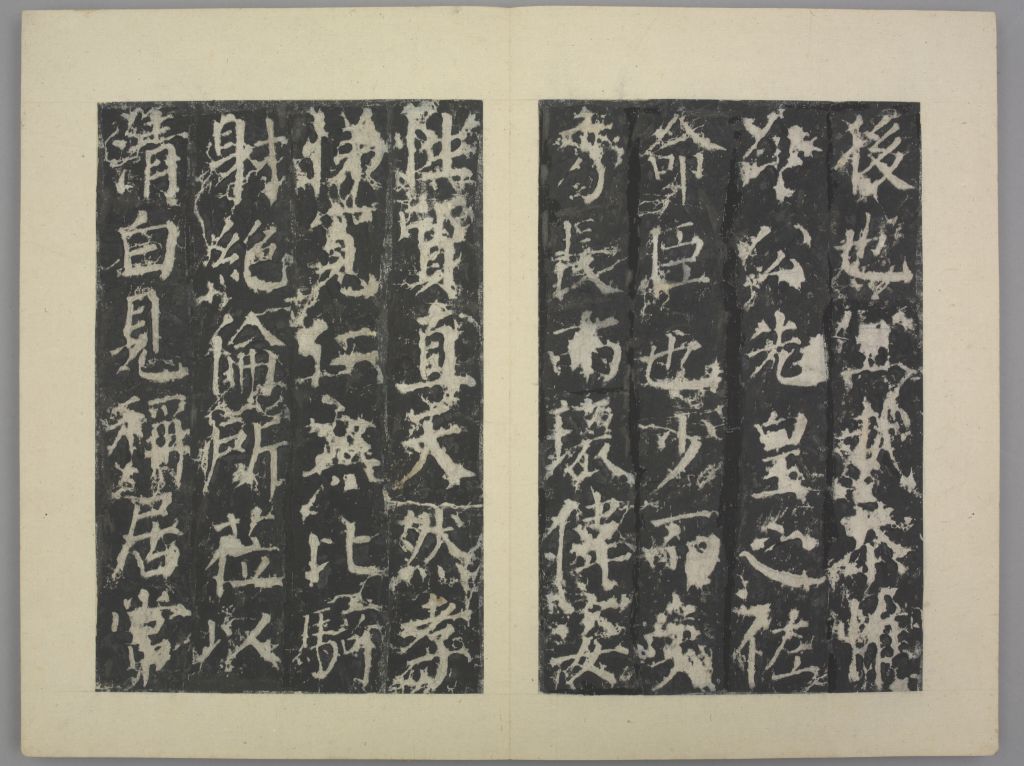 後也惟
公先皇之佐
命臣也少而英
秀長而瓌偉姿
性質直天然孝
悌寬仁無比騎
射絕倫所莅以
清自見稱居常